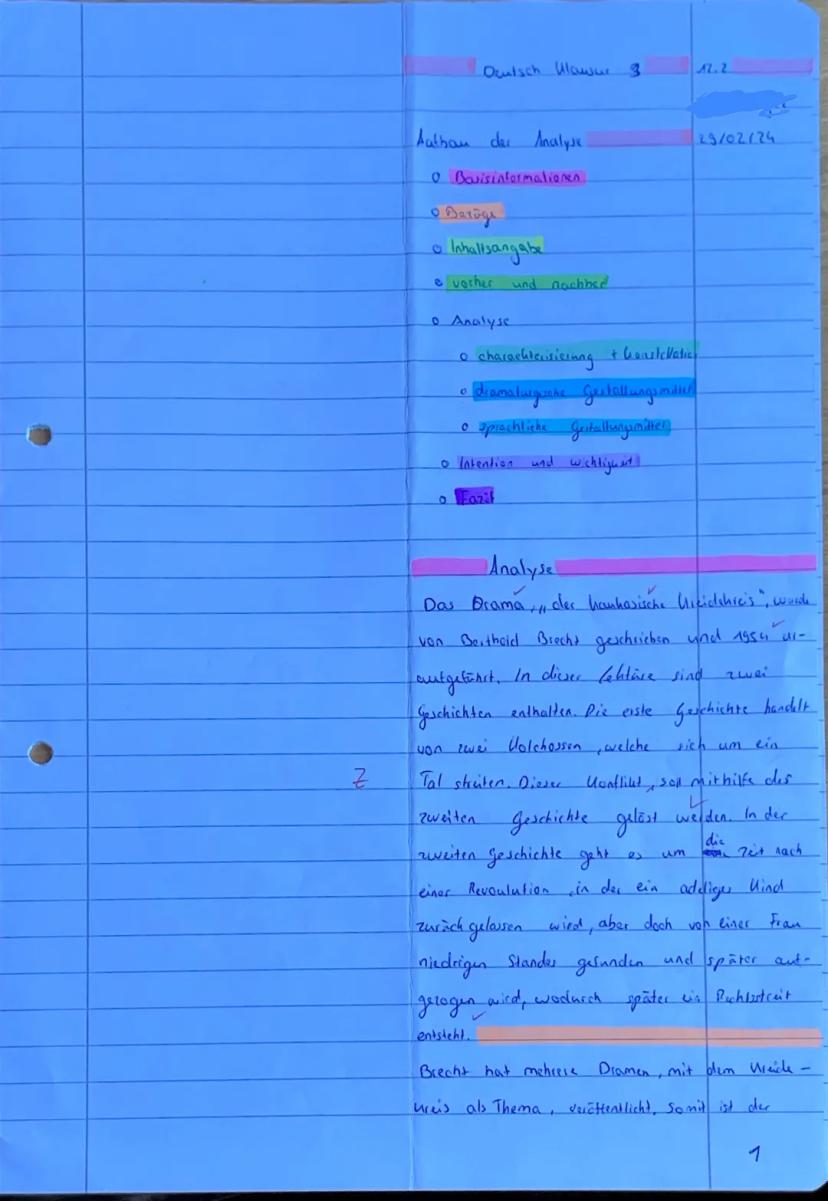 Deutsch Klausur 3 12.2
Aufbau der Analyse 29/02/24
o Basisinformationen
o Bezüge
o Inhaltsangabe
o vorher und nachher
o Analyse
o charachterisierung + konstellation
o dramaturgische Gestaltungsmittel
o sprachliche Gestaltungsmittel
o Intention und wichtigkeit
o Fazit
Analyse
Das Drama, „der kaukasische Kreidekreis", wurde
von Berthold Brecht geschrieben und 1954 ur-
aufgeführt. In dieser Lektüre sind zwei
Geschichten enthalten. Die erste Geschichte handelt
von zwei Kolchossen, welche sich um ein
Z Tal streiten. Dieser Konflikt, soll mithilfe der
zweiten Geschichte gelöst werden. In der
zweiten Geschichte geht es um die Zeit nach
einer Revoulution, in der ein addliges Kind
zurück gelassen wird, aber doch von einer Frau
niedrigen Standes gefunden und später auf-
gezogen wird, wodurch später ein Rechtsstreit
entsteht.
Brecht hat mehrere Dramen, mit dem Kreide-
kreis als Thema, veröffentlicht. Somit ist der
1